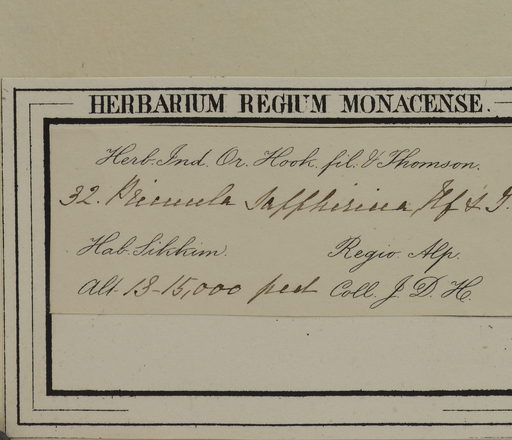 HERBARIUM REGIUM MONACENSE.
Herb. Ind. Or. Hook. fil. & Thomson.
32. Primula sapphirina, Hf & T.
Hab. Sikkim. Regio. Alp.
Alt. 13-15,000 peet Coll. J. D. H.